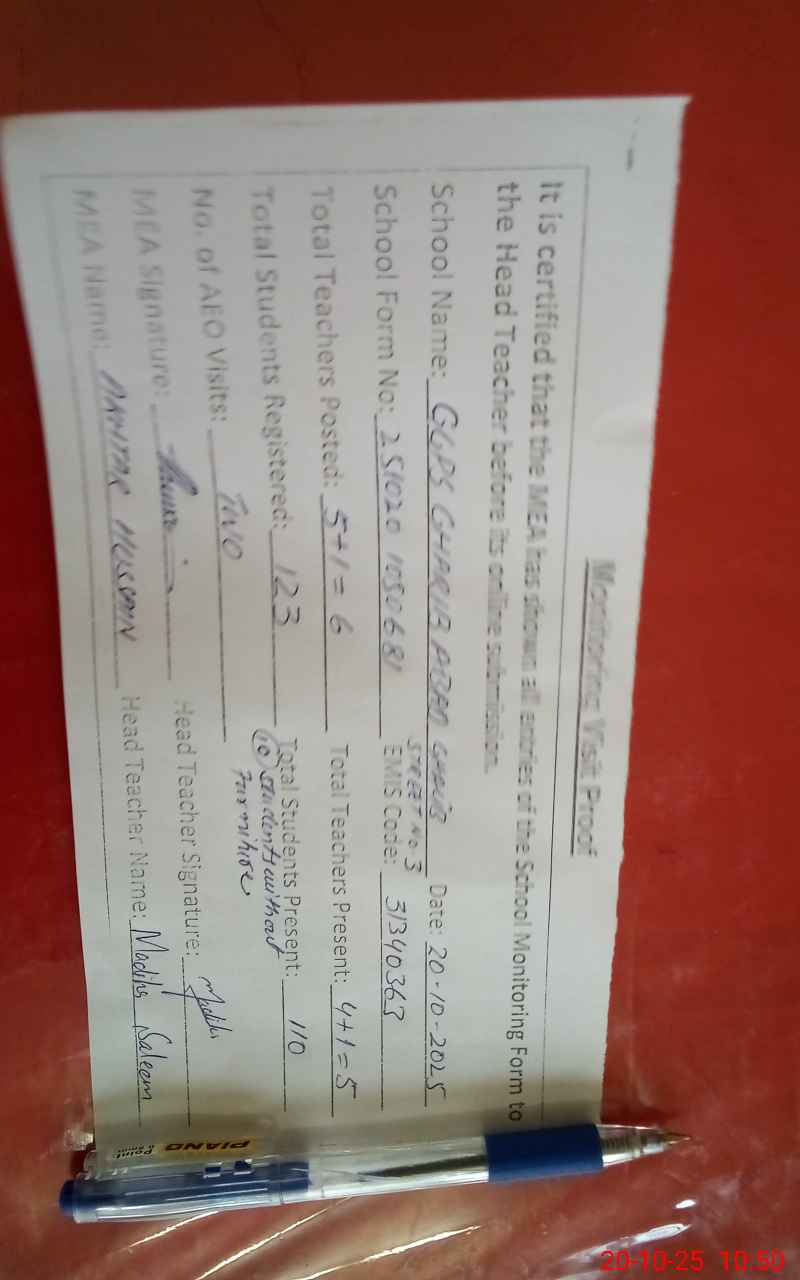 Monitoring Visit Proof
It is certified that the MEA has shown all entries of the School Monitoring Form to
the Head Teacher before its online submission.
School Name: GGPS GHARIB ABAD Date: 20-10-2025
STREET No. 3
School Form No: 251020 1050681 EMIS Code: 31340363
Total Teachers Posted: 5+1=6 Total Teachers Present: 4+1=5
Total Students Registered: 123 Total Students Present: 110
(10) Students without
Furniture
No. of AEO Visits: TWO
MEA Signature: Head Teacher Signature: Madiha
MEA Name: AKHTAR HUSSAIN Head Teacher Name: Madiha Saleem
PIANO
Point
20-10-25 10:50